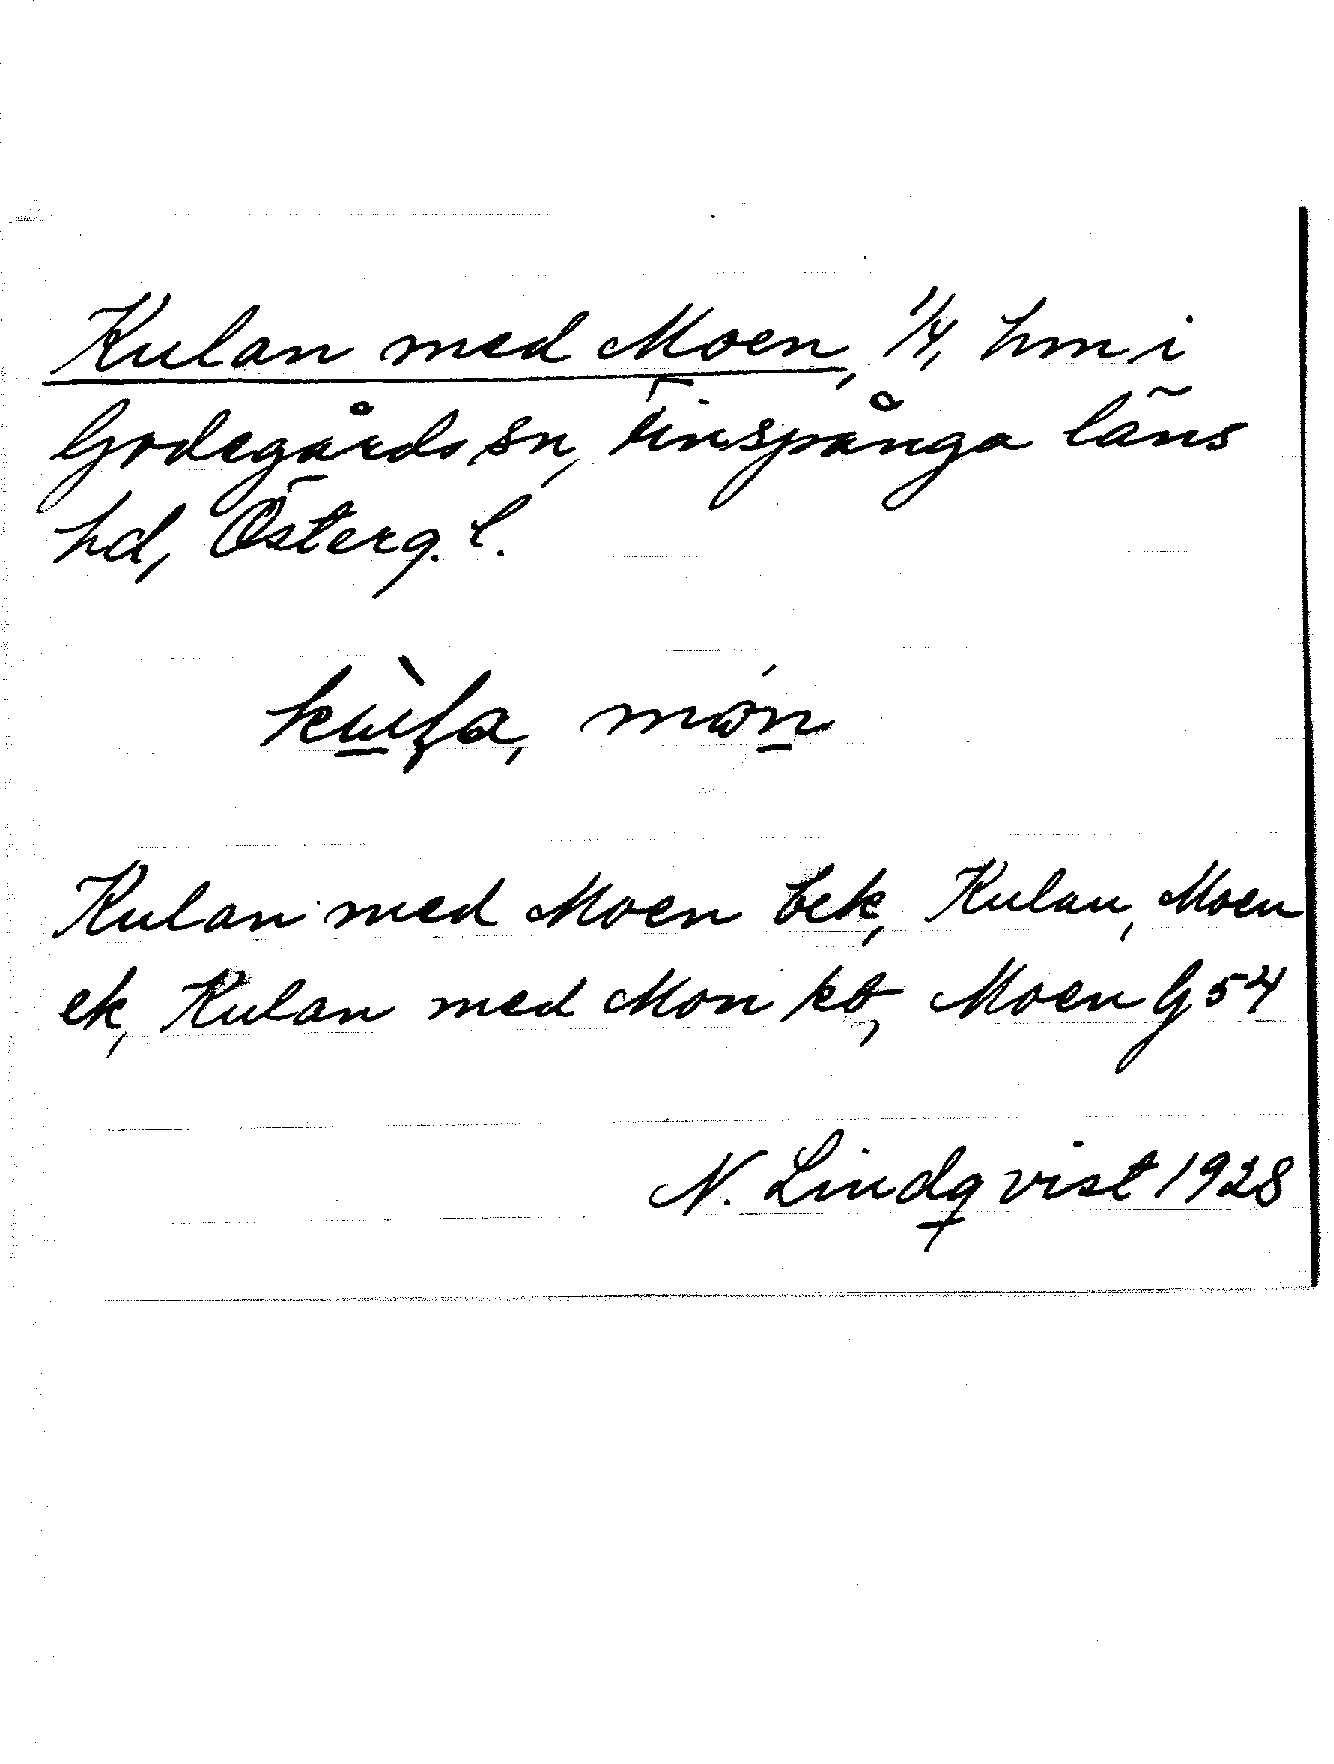 Kulan med Moen, 1/4, hm i
Godegårds sn, Finspånga läns
hd, Österg. l.
mon
Kulan med Moen bek, Kulan, Moen
ek, Kulan med Mon kb, Moen G 54
N. Lindqvist 1928